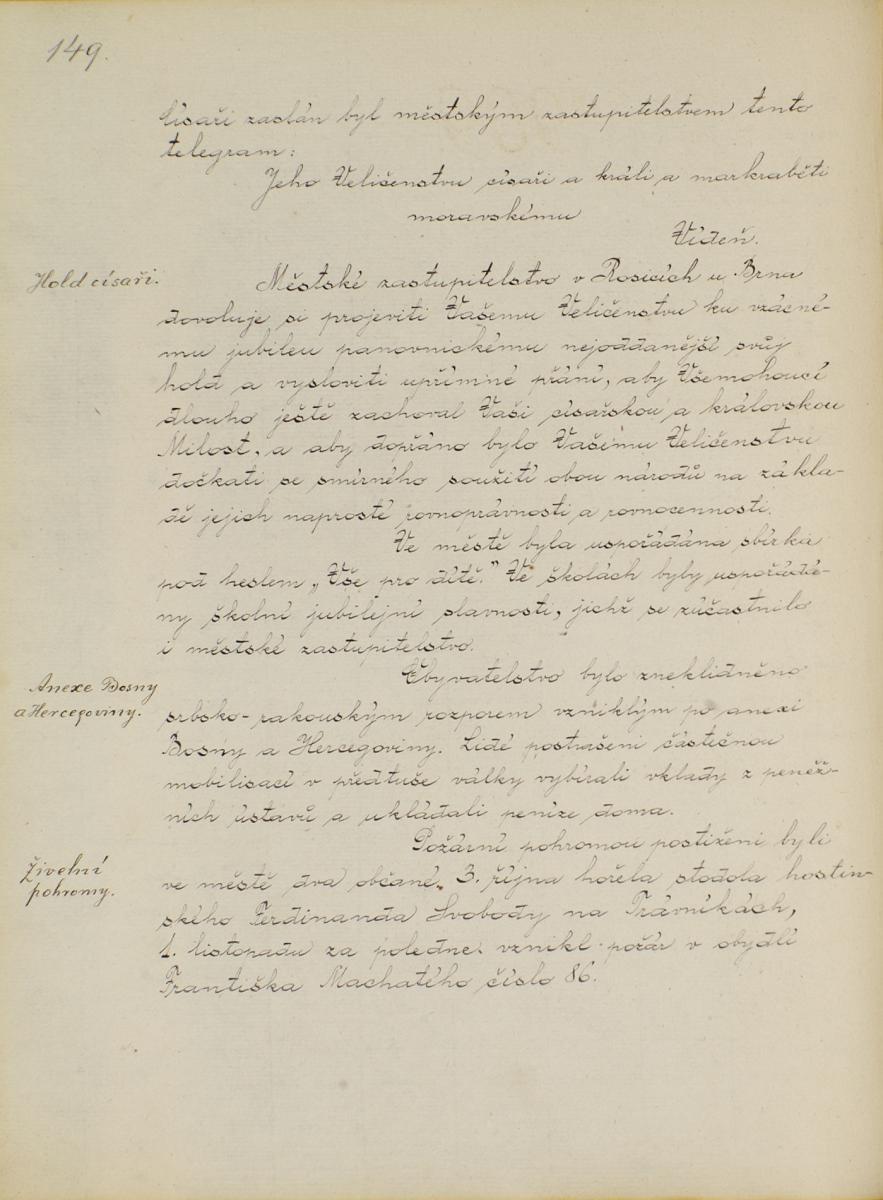 149.
Císaři zaslán byl městským zastupitelstvem tento
telegram:
Jeho Veličenstvu císaři a králi a markraběti
moravskému
Vídeň.
Hold císaři.
Městské zastupitelstvo v Rosicích u Brna
dovoluje si projeviti Vašemu Veličenstvu ku vzácné-
mu jubileu panovnickému nejoddanější svůj
hold a vysloviti upřímné přání, aby Všemohoucí
dlouho ještě zachoval Vaši císařskou a královskou
Milost, a aby dopřáno bylo Vašemu Veličenstvu
dočkati se smírného soužití obou národů na zákla-
dě jejich naprosté rovnoprávnosti a rovnocennosti.
Ve městě byla uspořádána sbírka
pod heslem „Vše pro dítě." Ve školách byly uspořádá-
ny školní jubilejní slavnosti, jichž se zúčastnilo
i městské zastupitelstvo.
Anexe Bosny
a Hercegoviny.
Obyvatelstvo bylo zneklidněno
srbsko-rakouským rozporem vzniklým po anexi
Bosny a Hercegoviny. Lidé postrašeni částečnou
mobilisací v předtuše války vybírali vklady z peněž-
ních ústavů a ukládali peníze doma.
Živelní
pohromy.
Požární pohromou postiženi byli
ve městě dva občané. 3. října hořela stodola hostin-
ského Ferdinanda Svobody na Trávníkách,
1. listopadu za poledne vznikl požár v obydlí
Františka Machatého číslo 86.